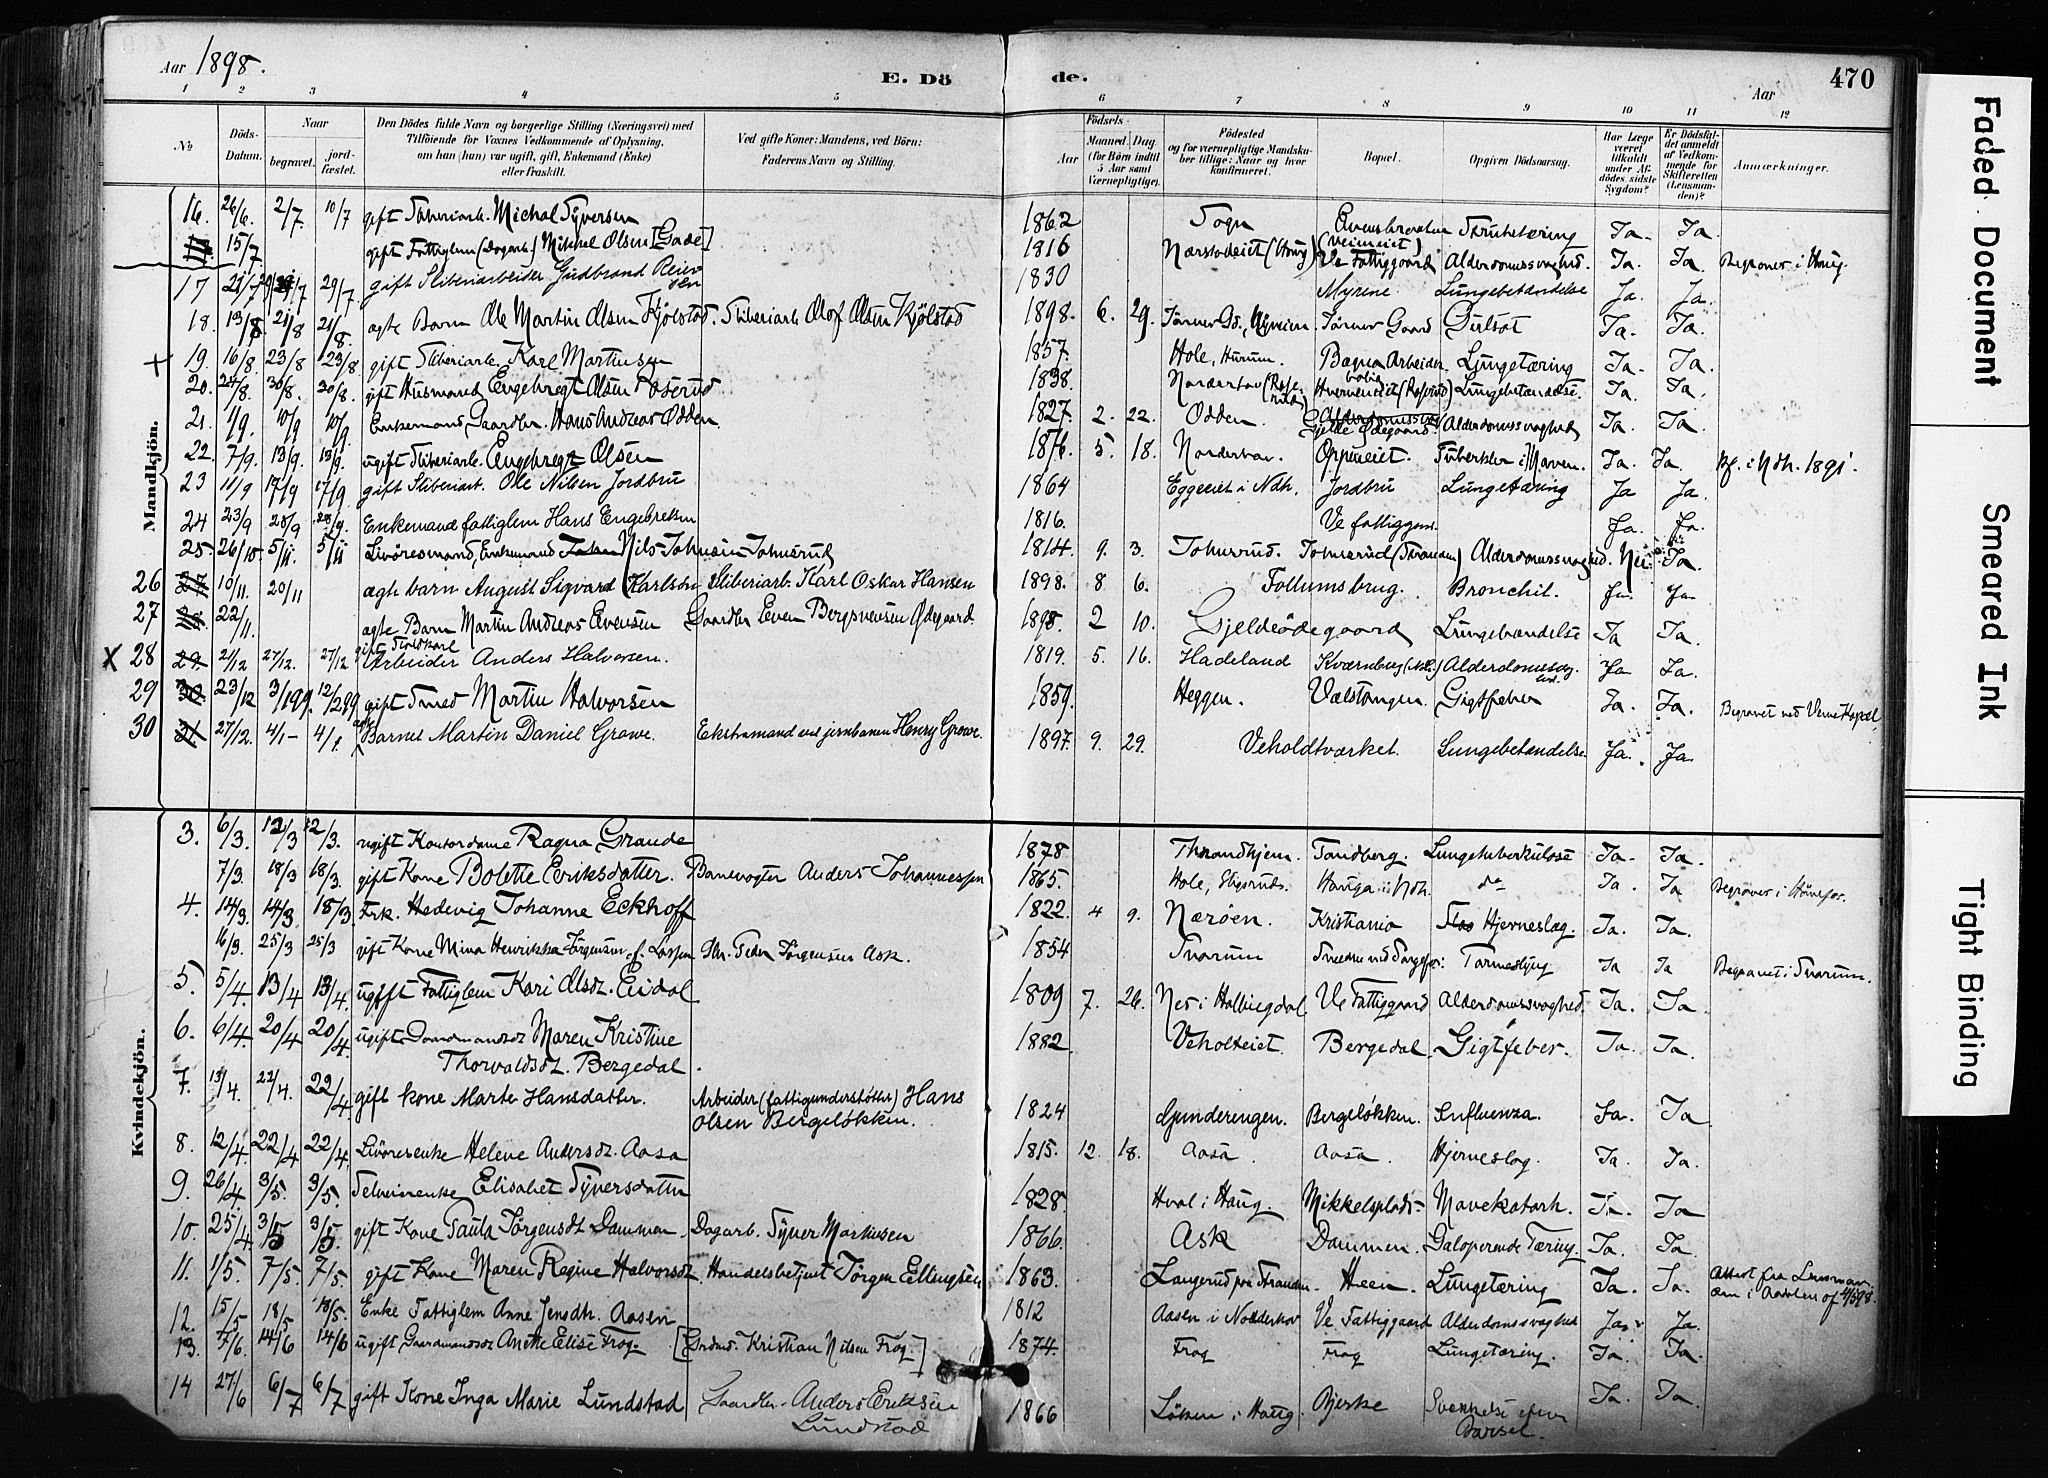 Aar 1898.
E. Dö de.
Aar
470
1 2 3 4 5 6 7 8 9 10 11 12
№
Döds-Datum.
Naar
begravet.
jordfæstet.
Den Dödes fulde Navn og borgerlige Stilling (Næringsvei) med
Tilföiende for Voxnes Vedkommende af Oplysning,
om han (hun) var ugift, gift, Enkemand (Enke)
eller fraskilt.
Ved gifte Koner: Mandens, ved Börn:
Faderens Navn og Stilling.
Födsels-
Aar
Maaned.
Dag.
(for Börn indtil 5 Aar samt Værnepligtige).
Födested
og for værnepligtige Mandskaber tillige: Naar og hvor konfirmeret.
Bopæl.
Opgiven Dödsaarsag.
Har Læge været tilkaldt under Afdödes sidste Sygdom?
Er Dödsfaldet anmeldt af Vedkommende for Skifteretten (Lensmanden)?
Anmærkninger.
Mandkjön.
16. 26/6. 2/7. 10/7 gift Sliberiarb. Michal Syversen 1862 Sogn Tæring Ja. Ja.
15/7 gift Fattiglem (Dagarb.) Mikkel Olsen [Gade] 1816 (Haug) Ve Fattiggaard Alderdomssvaghed. Ja. Ja. Begraves i Haug.
17 21/7 29/7 29/7 gift Sliberiarbeider Gudbrand Reiersen 1830 Myrene Lungebetændelse Ja. Ja.
18. 13/8 21/8 21/8. ægte Barn Ole Martin Olsen Kjölstad. Sliberiarb Olof Olsen Kjölstad 1898. 6. 29. Gaard Ja. Ja.
+ 19. 16/8. 23/8 23/8. gift Sliberiarb. Karl Martinsen 1857. Hole, Hurum. Bagna Arbeiderbolig Lungetæring Ja. Ja.
20. 24/8. 30/8. 30/8. gift Husmand Engebregt Olsen Roserud 1838. Norderhov (Roserud) Hverveneiet (Roserud) Lungebetændelse. Ja. Ja.
21. 1/9. 10/9 10/9. Enkemand, Gaardbr. Hans Andreas Odden 1827. 2. 22. Odden. Gjelde Ødegaard. Alderdomssvaghed Ja. Ja.
22. 7/9. 13/9. 13/9. ugift Sliberiarb. Engebregt Olsen 1876. 5. 18. Norderhov. Oppineiet. Tuberkler i Maven. Ja. Ja. Kf. i Ndh. 1891.
23 11/9 17/9 17/9. gift Sliberiarb. Ole Nilsen Jordbru 1864 Eggeeiet i Ndh. Jordbru Lungetæring Ja Ja.
24 23/9 28/9 28/9. Enkemand fattiglem Hans Engebretsen 1816. Ve fattiggrd. Ja. Ja.
25. 26/10. 5/11. 5/11 Livöresmand, Enkemand Nils Johnsen Johnsrud 1814. 9. 3. Johnsrud. Johnsrud (Stranden) Alderdomssvaghed. Nei. Ja.
26 27. 10/11. 20/11 ægte barn August Sigvard Karlsen Sliberiarb. Karl Oskar Hansen 1898. 8 6. Follumsbrug. Bronchit. Ja. Ja
27 28. 22/11. ægte Barn Martin Andreas Evensen Gaardbr Even Bergsvensen Ødegaard 1898. 2 10. Gjeldeødegaard Lungebændelse Ja Ja.
X 28 29. 21/12 27/12. 27/12 gift Arbeider Anders Halvorsen. 1819. 5. 16. Hadeland Kværnberg Alderdomssvag. Ja Ja.
29 30. 23/12 3/1 99. 12/2 99 gift Smed Martin Halvorsen 1859. Heggen. Vælstangen Gigtfeber Ja. Ja. Begravet ved Verne Kapel.
30 31. 27/12. 4/1- 4/1. ægte Barnet Martin Daniel Growe. Ekstramand ved jernbanen Henry Growe. 1897. 9. 29. Veholdtværket. Lungebetændelse. Ja. Ja
Kvindekjön.
3. 6/3. 12/3 12/3. ugift Kontordame Ragna Grande 1878 Throndhjem. Tandberg. Lungetuberkuløse Ja. Ja.
7/3. 18/3 18/3. gift Kone Bolette Eriksdatter. Banevogter Anders Johannessen 1865. Hole, Hauga i Ndh. do Ja. Ja Begraves i Hönefos.
4. 14/3. 14/3 18/3. Frk. Hedevig Johanne Eckhoff 1822. 4 9. Nærøen. Kristiania Hjerneslag. Ja. Ja.
16/3. 25/3 25/3 gift Kone Mina Henrikka Jørgensen f. Larsen Gbr. Peder Jörgensen Ask. 1854 Svarum Tarmeslyng Ja Ja Begravet i Svarum.
5. 5/4. 13/4 13/4. ugift Fattiglem Kari Olsdt. Eidal 1809 7. 26. Nes i Hallingdal Ve Fattiggaard Alderdomssvaghed. Ja. Ja
6. 6/4. 20/4 20/4 ugift Gaardmandsdt Maren Kristine 1882. Veholteiet. Bergedal. Gigtfeber. Ja. Ja.
Thorvaldsdt. Bergedal.
7. 13/4. 22/4. 22/4 gift kone Marte Hansdatter. Arbeider (fattigunderstøttet) Hans 1824 Gunderengen. Bergeløkken. Influenza. Ja. Ja
Olsen Bergeløkken.
8. 12/4. 22/4 22/4. Livöresenke Helene Andersdt. Aasa 1815. 12. 18. Aasa. Aasa. Hjerneslag. Ja. Ja.
9. 26/4. 3/5. 3/5. Selveierenke Elisabet Syversdatter 1828. Hval i Haug. Mikkelsplads Mavekatarh. Ja. Ja
10. 25/4. 3/5 3/5. gift Kone Paula Jörgensdt Dammen. Dagarb. Syver Markusen 1866. Ask Dammen. Galoperende Tæring. Ja. Ja.
11. 1/5. 7/5. 7/5. gift Kone Maren Regine Halvorsdt. Handelsbetjent Jörgen Ellingsen 1863. Langerud paa Stranden. Heen. Lungetæring Ja. Ja. Attest fra Lensmanden i Aadalen af 4/5 98.
12. 15/5 18/5 18/5. Enke Fattiglem Anne Jensdtr. Aasen 1812 Aasen i Norderhov Ve Fattiggaard Alderdomssvaghed Ja. Ja.
13. 7/6. 14/6 14/6 ugift Gaardmandsdt Anette Elise Frog. [Grdmd. Kristian Nilsen Frog.] 1874. Frog Frog Lungetæring. Ja. Ja.
14 27/6 6/7 6/7 gift Kone Inga Marie Lundstad Gaardbr. Anders Eriksen 1866 Löken i Haug. Bjerke Svækkelse efter Ja. Ja.
Lundstad Barsel.
Faded Document
Smeared Ink
Tight Binding